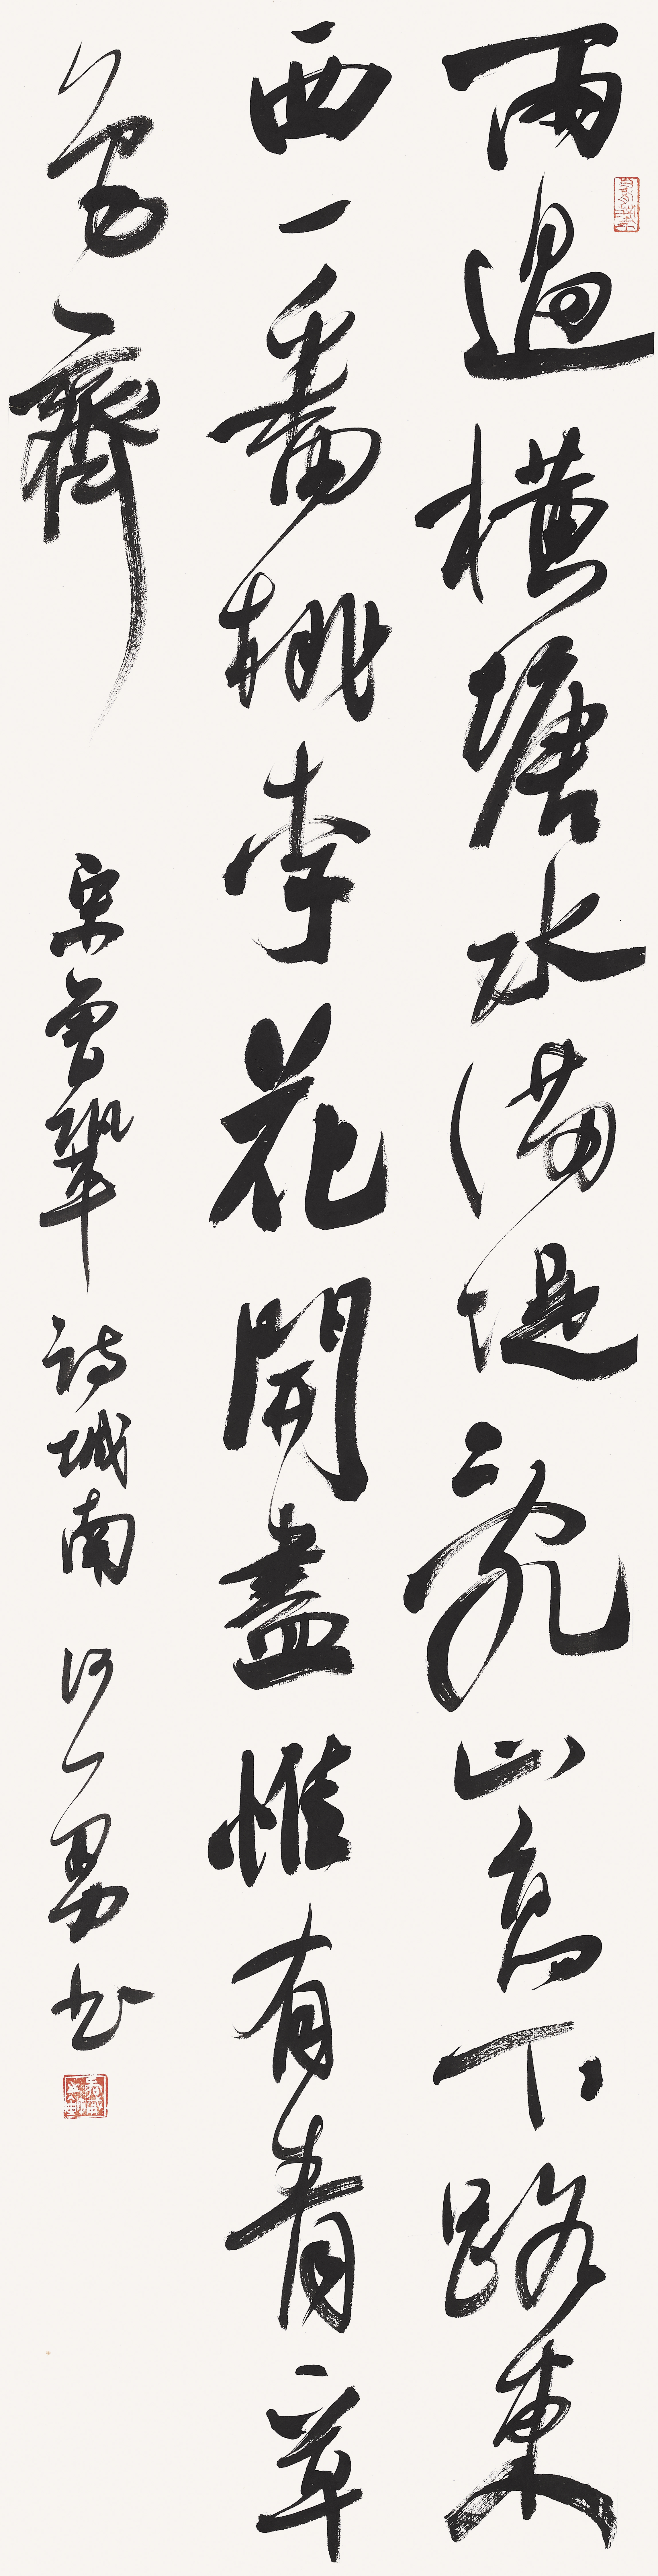 雨過橫塘水滿堤亂山高下路東
西一番桃李花開盡惟有青草
色齊
宋曾鞏詩城南 何一男書